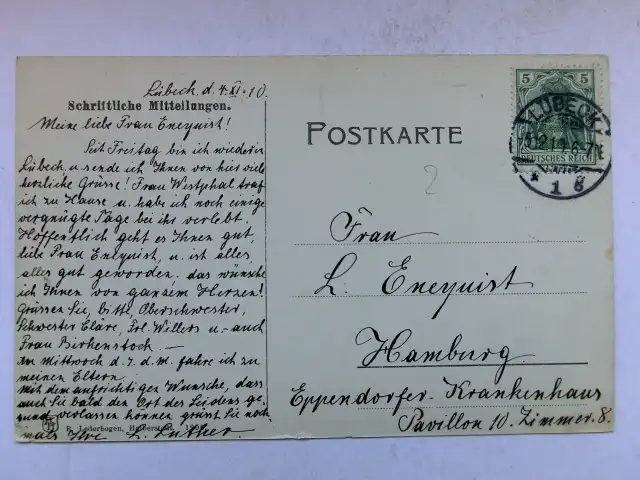 Lübeck, d. 4. XI. 10.
Schriftliche Mitteilungen.
Meine liebe Frau Enequist!
Seit Freitag bin ich wieder in
Lübeck u. sende ich Ihnen von hier viele
herzliche Grüsse! Frau Westphal traf
ich zu Hause u. habe ich noch einige
vergnügte Tage bei ihr verlebt.
Hoffentlich geht es Ihnen gut,
liebe Frau Enequist, u. ist alles,
alles gut geworden. das wünsche
ich Ihnen von ganzem Herzen!
Grüssen Sie, bitte, Oberschwester,
Schwester Cläre, Frl. Willers u. auch
Frau Birkenstock. —
Am Mittwoch d. 7. d. M. fahre ich zu
meinen Eltern.
Mit dem aufrichtigen Wunsche, dass
auch Sie bald den Ort des Leidens ge-
sund verlassen können grüsst Sie noch-
mals Ihre L. Luther.
R. Lederbogen, Halberstadt
POSTKARTE
2
5 5
DEUTSCHES REICH
LÜBECK
6-7
1
Frau
L. Enequist
Hamburg
Eppendorfer-Krankenhaus
Pavillon 10. Zimmer 8.